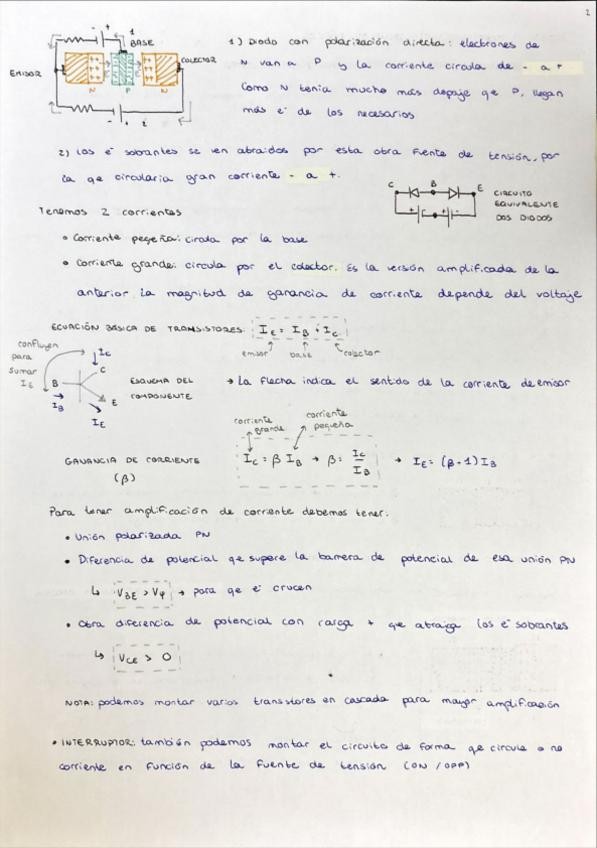 2
1
BASE
EMISOR
COLECTOR
N P N
2
1) Diodo con polarización directa: electrones de
N van a P y la corriente circula de - a +
Como N tenía mucho más dopaje qe P, llegan
más e⁻ de los necesarios
2) Los e⁻ sobrantes se ven atraidos por esta otra fuente de tensión, por
la qe circularia gran corriente - a +.
C B E
CIRCUITO
EQUIVALENTE
DOS DIODOS
Tenemos 2 corrientes
• Corriente peqeña: cirula por la base
• Corriente grande: circula por el colector. Es la versión amplificada de la
anterior. La magnitud de ganancia de corriente depende del voltaje
ECUACIÓN BÁSICA DE TRANSISTORES: I_E = I_B + I_C
emisor base colector
confluyen
para
sumar
I_E
I_C
C
B
E
I_B
I_E
ESQUEMA DEL
COMPONENTE
→ La flecha indica el sentido de la corriente de emisor
corriente
grande
corriente
peqeña
GANANCIA DE CORRIENTE
(β)
I_C = β I_B → β = I_C / I_B → I_E = (β - 1) I_B
Para tener amplificación de corriente debemos tener:
• Unión polarizada PN
• Diferencia de potencial qe supere la barrera de potencial de esa unión PN
↳ V_BE > V_φ → para qe e⁻ crucen
• Otra diferencia de potencial con carga + qe atraiga los e⁻ sobrantes
↳ V_CE > 0
NOTA: podemos montar varios transistores en cascada para mayor amplificación
• INTERRUPTOR: también podemos montar el circuito de forma qe circule o no
corriente en función de la fuente de tensión (ON / OFF)